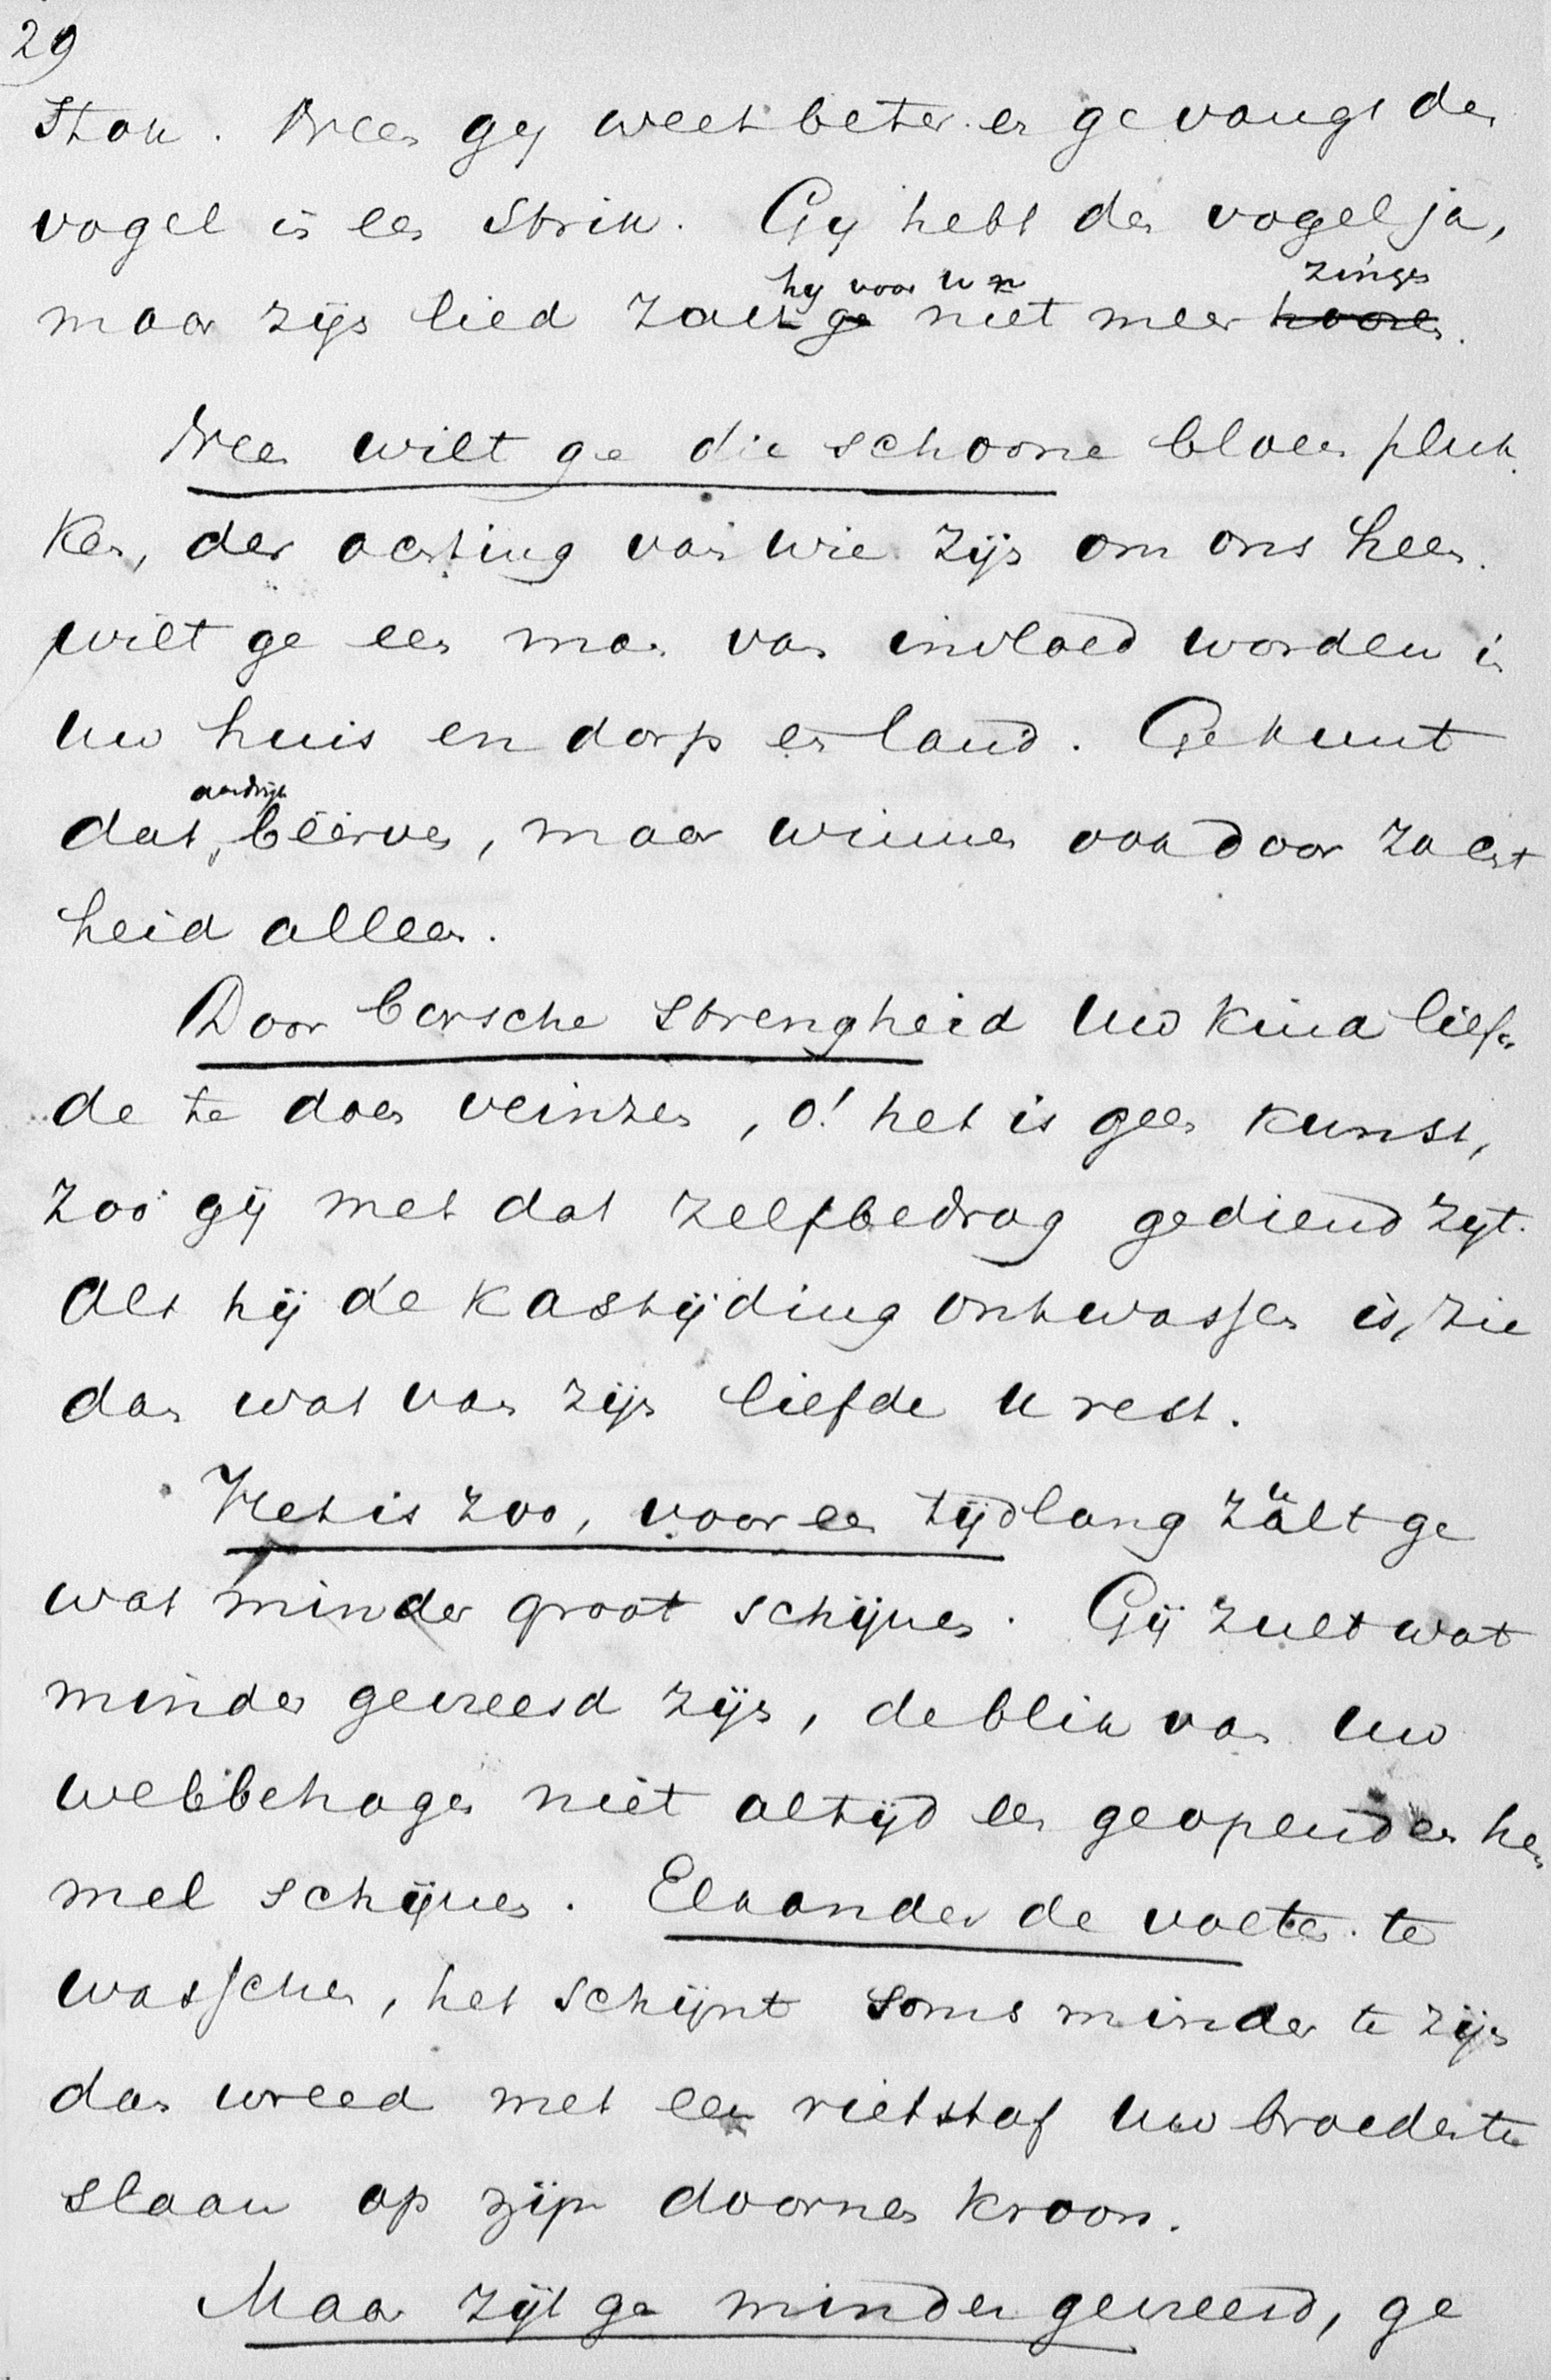 29
Stok. Neen gy weet beter en ge vangt den
vogel in een Strik. Gy hebt den vogel ja,
hy voor u zingen
maar zijn lied zal ge niet meer hooren.
Neen wilt ge die schoone bloem pluk
ken, der achting van wie zijn om ons heen.
wilt ge een man van invloed worden in
uw huis en dorp en land. Ge kunt
aardrijk
dat beërven, maar winnen ook door zacht
heid alleen.
Door barsche strengheid uw kind lief
de te doen veinzen, o! het is geen kunst,
zoo gij met dat zelfbedrog gediend zijt.
Als hij de kastijding ontwassen is, zie
dan wat van zijn liefde u rest.
Het is zoo, voor een tijdlang zult ge
wat minder groot schijnen. Gij zult wat
minder gevreesd zijn, de blik van uw
welbehagen niet altijd een geopenden he
mel schijnen. Elkander de voeten te
wasschen, het schijnt soms minder te zijn
dan wreed met een rietstaf uw broeder te
slaan op zijn doornen kroon.
Maar zijt ge minder gevreesd, ge